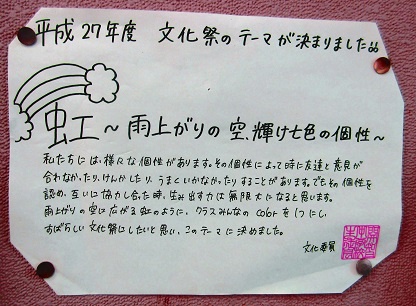 平成27年度 文化祭のテーマが決まりました。。
虹～雨上がりの空、輝け七色の個性～
私たちには、様々な個性があります。その個性によって時に友達と意見が
合わなかったり、けんかしたり、うまくいかなかったりすることがあります。でもその個性を
認め、互いに協力し合った時、生み出す力は無限大になると思います。
雨上がりの空に広がる虹のように、クラスみんなのcolorを1つにし
すばらしい文化祭にしたいと思い、このテーマに決めました。
文化委員